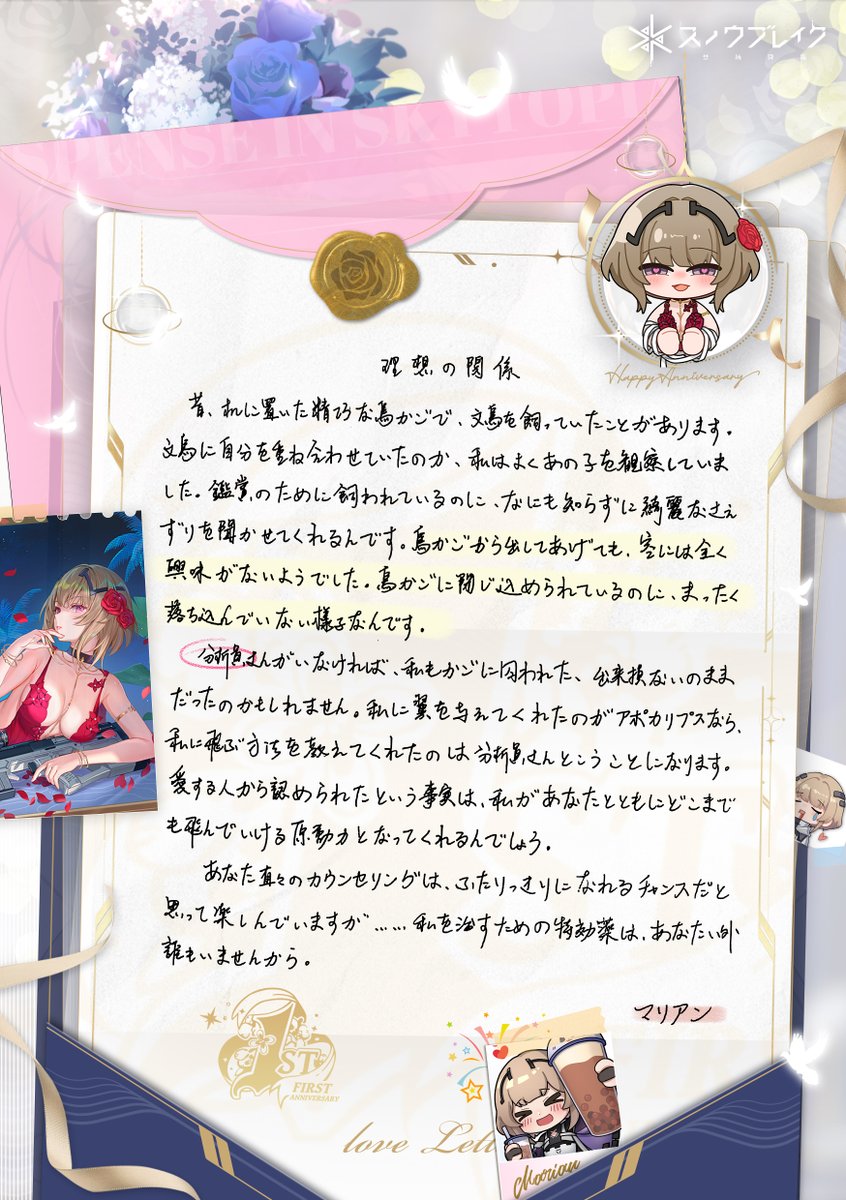 スノウブレイク
SPENSE IN SKYTOPI
Happy Anniversary
理想の関係
昔、机に置いた精巧な鳥かごで、文鳥を飼っていたことがあります。
文鳥に自分を重ね合わせていたのか、私はよくあの子を観察していま
した。鑑賞のために飼われているのに、なにも知らずに綺麗なさえ
ずりを聞かせてくれるんです。鳥かごから出してあげても、空には全く
興味がないようでした。鳥かごに閉じ込められているのに、まったく
落ち込んでいない様子なんです。
分析員さんがいなければ、私もかごに囚われた、出来損ないのまま
だったのかもしれません。私に翼を与えてくれたのがアポカリプスなら、
私に飛ぶ方法を教えてくれたのは分析員さんとこうことになります。
愛する人から認められたという事実は、私があなたとともにどこまで
も飛んでいける原動力となってくれるんでしょう。
あなた直々のカウンセリングは、ふたりっきりになれるチャンスだと
思って楽しんでいますが……私を治すための特効薬は、あなた以外
誰もいませんから。
マリアン
1ST
FIRST
ANNIVERSARY
love Lett
Marian